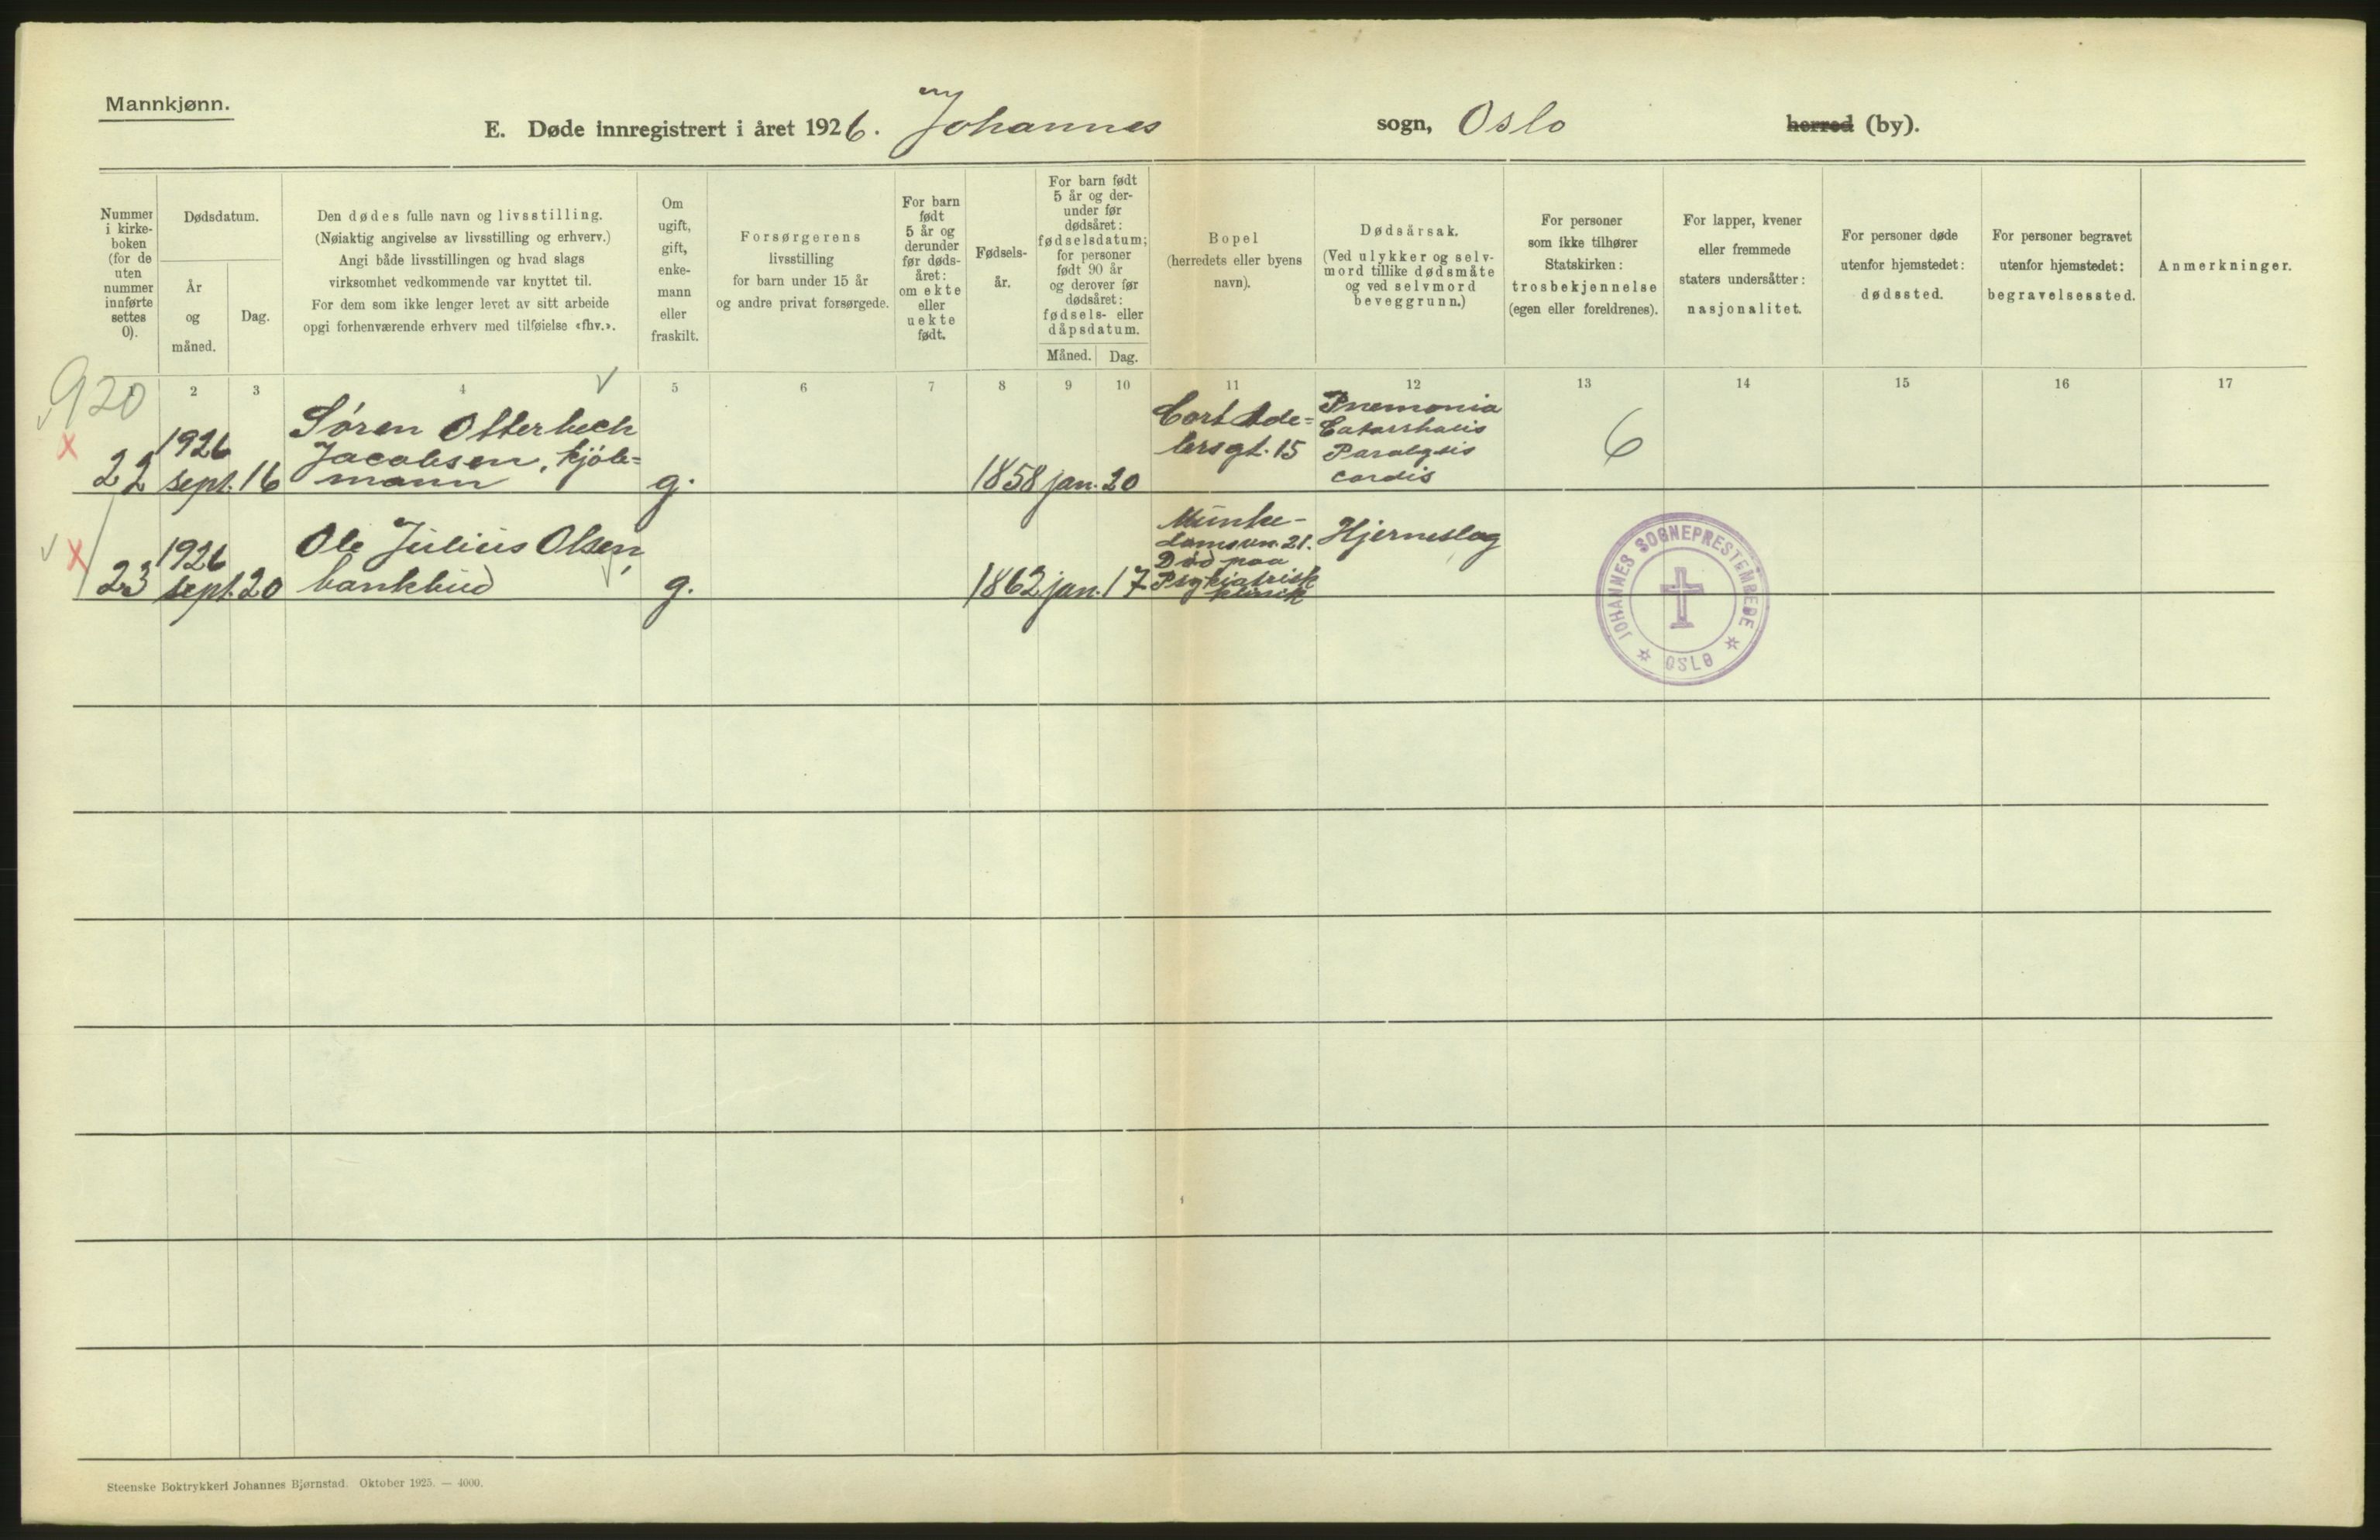 Mannkjønn.
E. Døde innregistrert i året 1926. Johannes sogn, Oslo herred (by).
Nummer
i kirke-
boken
(for de
uten
nummer
innførte
settes
0).
Dødsdatum.
År
og
måned.
Dag.
Den dødes fulle navn og livsstilling.
(Nøiaktig angivelse av livsstilling og erhverv.)
Angi både livsstillingen og hvad slags
virksomhet vedkommende var knyttet til.
For dem som ikke lenger levet av sitt arbeide
opgi forhenværende erhverv med tilføielse «fhv.».
Om
ugift,
gift,
enke-
mann
eller
fraskilt.
Forsørgerens
livsstilling
for barn under 15 år
og andre privat forsørgede.
For barn
født
5 år og
derunder
før døds-
året:
om ekte
eller
uekte
født.
Fødsels-
år.
For barn født
5 år og der-
under før
dødsåret:
fødselsdatum;
for personer
født 90 år
og derover før
dødsåret:
fødsels- eller
dåpsdatum.
Måned. Dag.
Bopel
(herredets eller byens
navn).
Dødsårsak.
(Ved ulykker og selv-
mord tillike dødsmåte
og ved selvmord
beveggrunn.)
For personer
som ikke tilhører
Statskirken:
trosbekjennelse
(egen eller foreldrenes).
For lapper, kvener
eller fremmede
staters undersåtter:
nasjonalitet.
For personer døde
utenfor hjemstedet:
dødssted.
For personer begravet
utenfor hjemstedet:
begravelsessted.
Anmerkninger.
2 3 4 5 6 7 8 9 10 11 12 13 14 15 16 17
920
22
1926
sept. 16
Søren Otterbech
Jacobsen, kjøb=
mann
g.
1858 jan. 20
Cort Ade=
lersgt. 15
Pnemonia
Catarrhalis
Paralysis
cordis
6
23
1926
sept. 20
Ole Julius Olsen,
bankbud
g.
1862 jan. 17
Munke-
damsvn. 21.
Død paa
Psykiatrisk
klinik
Hjerneslag
JOHANNES SOGNEPRESTEMBEDE
OSLO
Steenske Boktrykkeri Johannes Bjørnstad. Oktober 1925. — 4000.